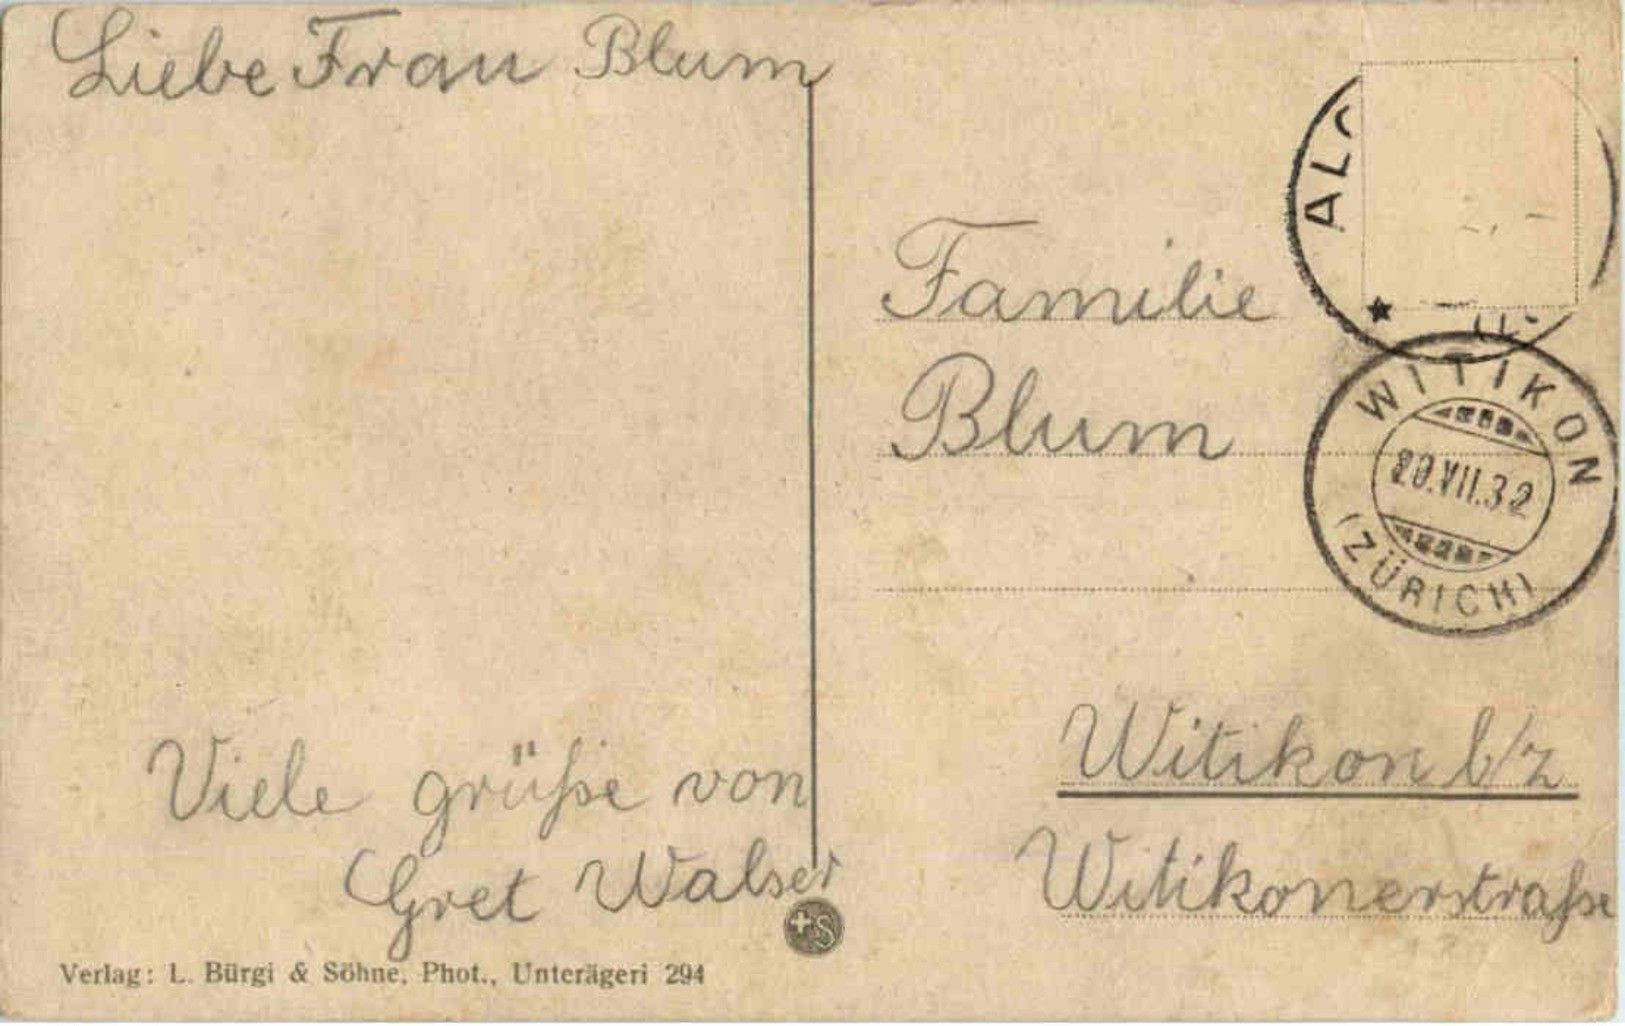 Liebe Frau Blum
Viele grüße von
Gret Walser
Verlag: L. Bürgi & Söhne, Phot., Unterägeri 294
+S
Familie
Blum
Witikon b/z
Witikonerstraße
WITIKON
20.VII.32
(ZÜRICH)